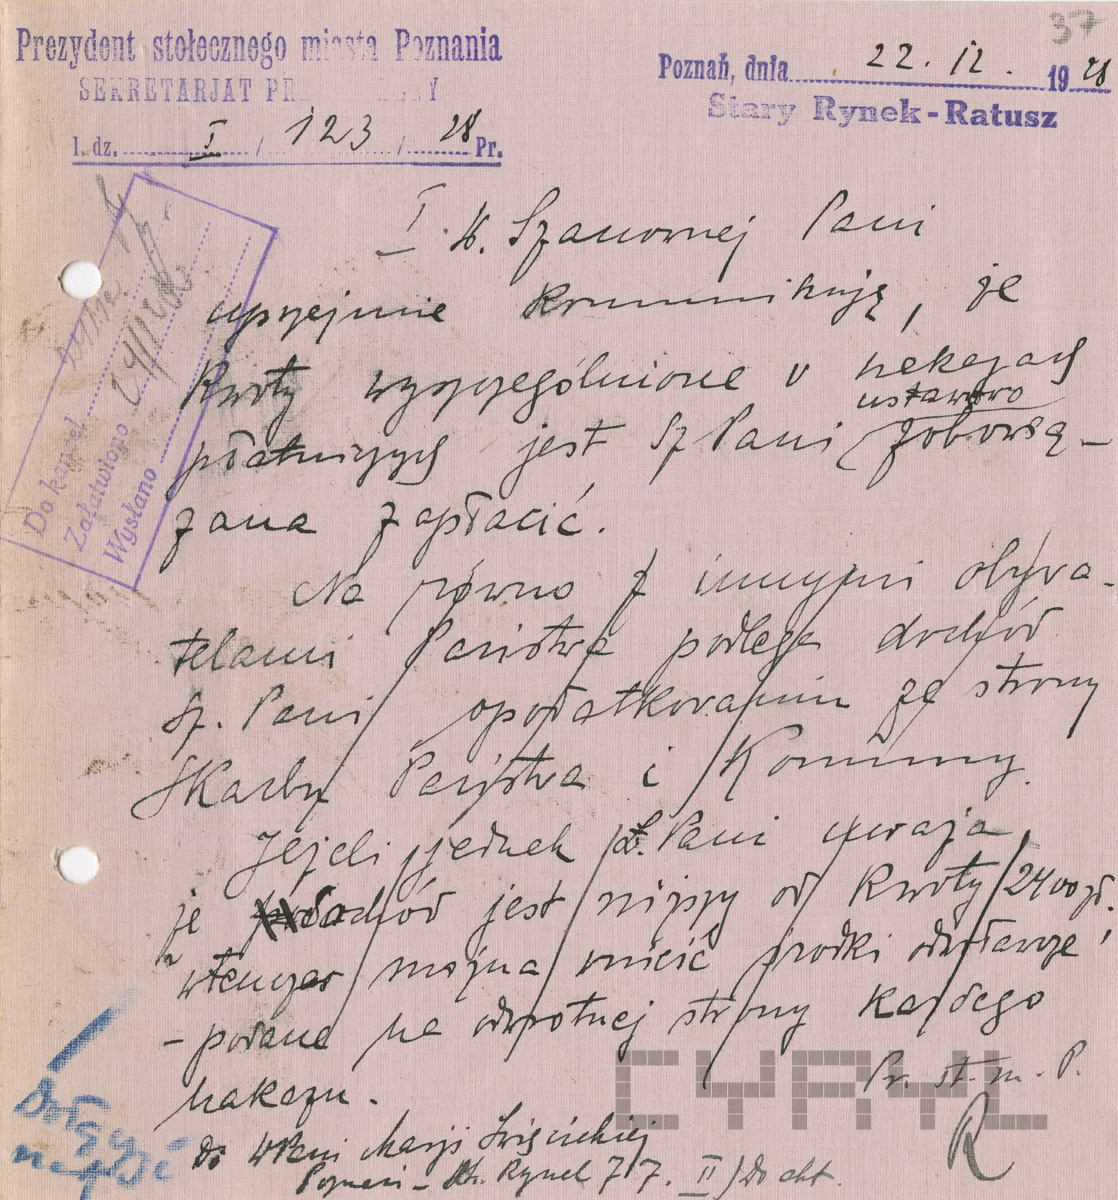 37
Prezydent stołecznego miasta Poznania
SEKRETARJAT
l. dz. I / 123 / 28 Pr.
Poznań, dnia 22. 12. 1928
Stary Rynek-Ratusz
Do kancel.
Załatwiono
Wysłano
I. W. Szanownej Pani
uprzejmie komunikuję, że
kwoty wyszczególnione w nakazach
płatniczych jest Sz Pani ustawowo zobowią-
zana zapłacić.
Na równi z innymi obywa-
telami Państwa podlega dochód
Sz. Pani opodatkowaniu ze strony
Skarbu Państwa i Komuny.
Jeżeli jednak Sz. Pani uważa,
że dochód jest niższy od kwoty 2400 zł.
wtenczas można wnieść środki odwoławcze
- podane na odwrotnej strony każdego
nakazu.
Pr. st. m. P.
R
Do WPani Marji Święcickiej
Poznań - St. Rynek 77. II) Do akt.
Dołączyć
CYRYL